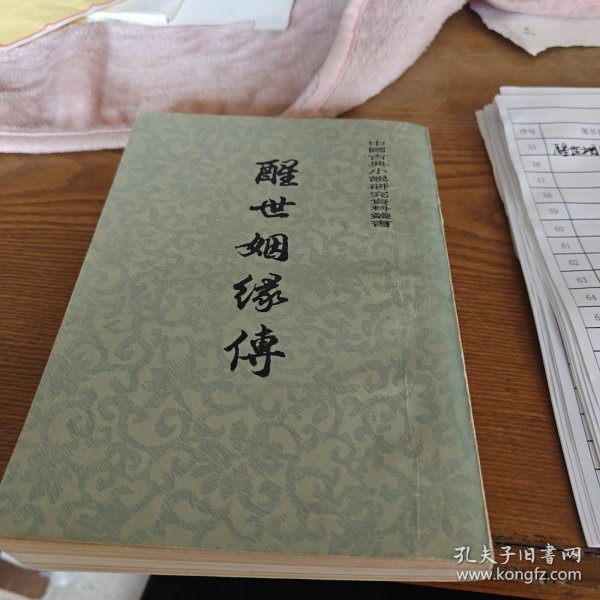 中國古典小說研究資料叢書
醒世姻緣傳
序号
55
醒世姻
56
57
58
59
60
61
62
63
64
孔夫子旧书网
www.kongfz.com